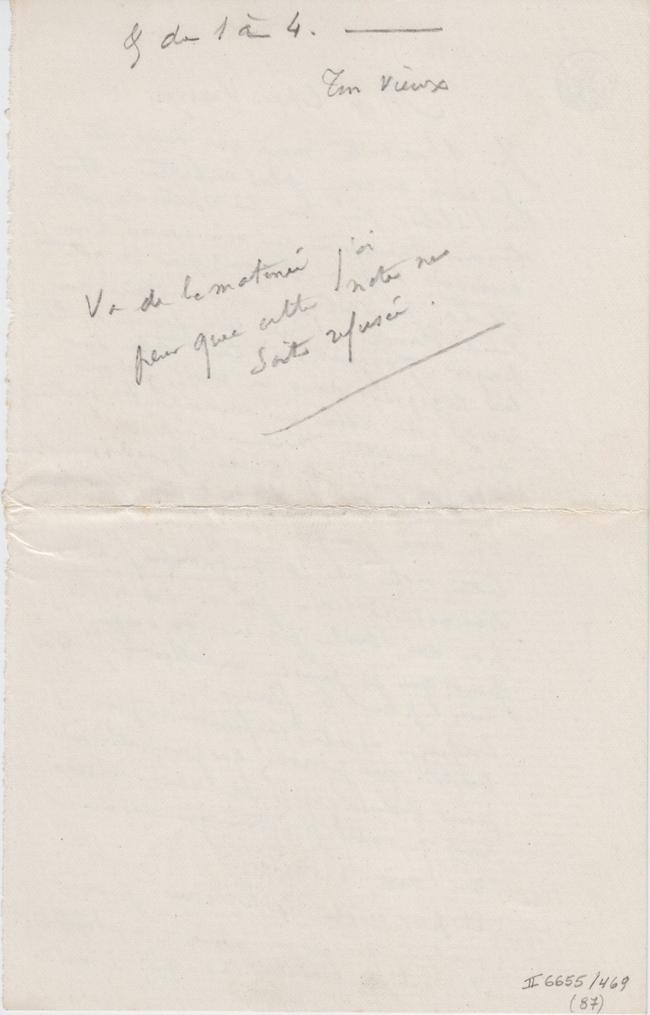 & de 1 à 4.
Ton vieux
Vu de la matinée j'ai
peur que cette note ne
soit refusée.
II 6655/469
(87)